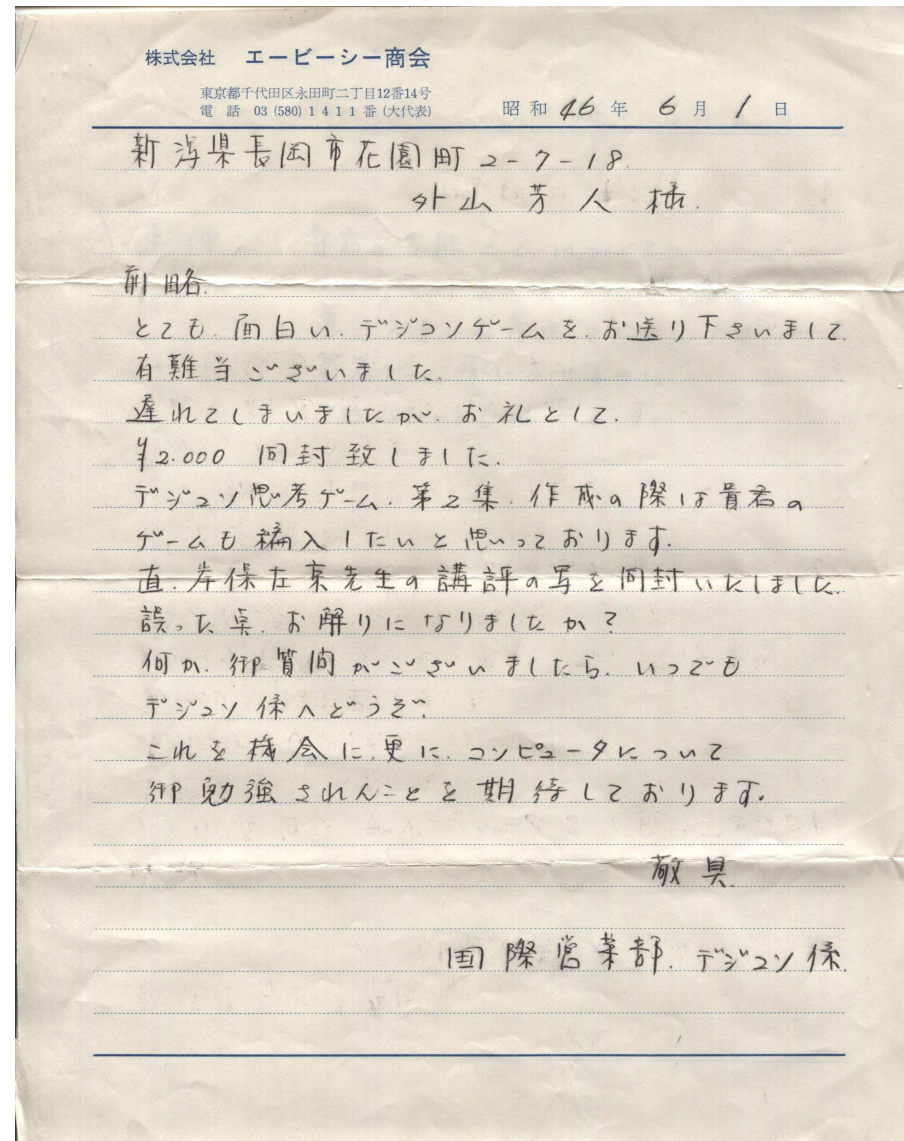 株式会社 エービーシー商会
東京都千代田区永田町二丁目12番14号
電話 03 (580) 1411番 (大代表)
昭和 46 年 6 月 1 日
新潟県長岡市花園町2-7-18.
外山 芳人 様.
前略.
とても.面白い.デジコンゲームを.お送り下さいまして
有難当ございました.
遅れてしまいましたが.お礼として.
¥2.000 同封致しました.
デジコン思考ゲーム.第2集.作成の際は貴君の
ゲームも編入したいと思いっております.
直.岸保左京先生の講評の写を同封いたしました.
誤った点.お解りになりましたか?
何か.御質問がございましたら.いつでも
デジコン係へどうぞ.
これを機会に.更に.コンピュータについて
御勉強されんことを期待しております.
敬具.
国際営業部.デジコン係.